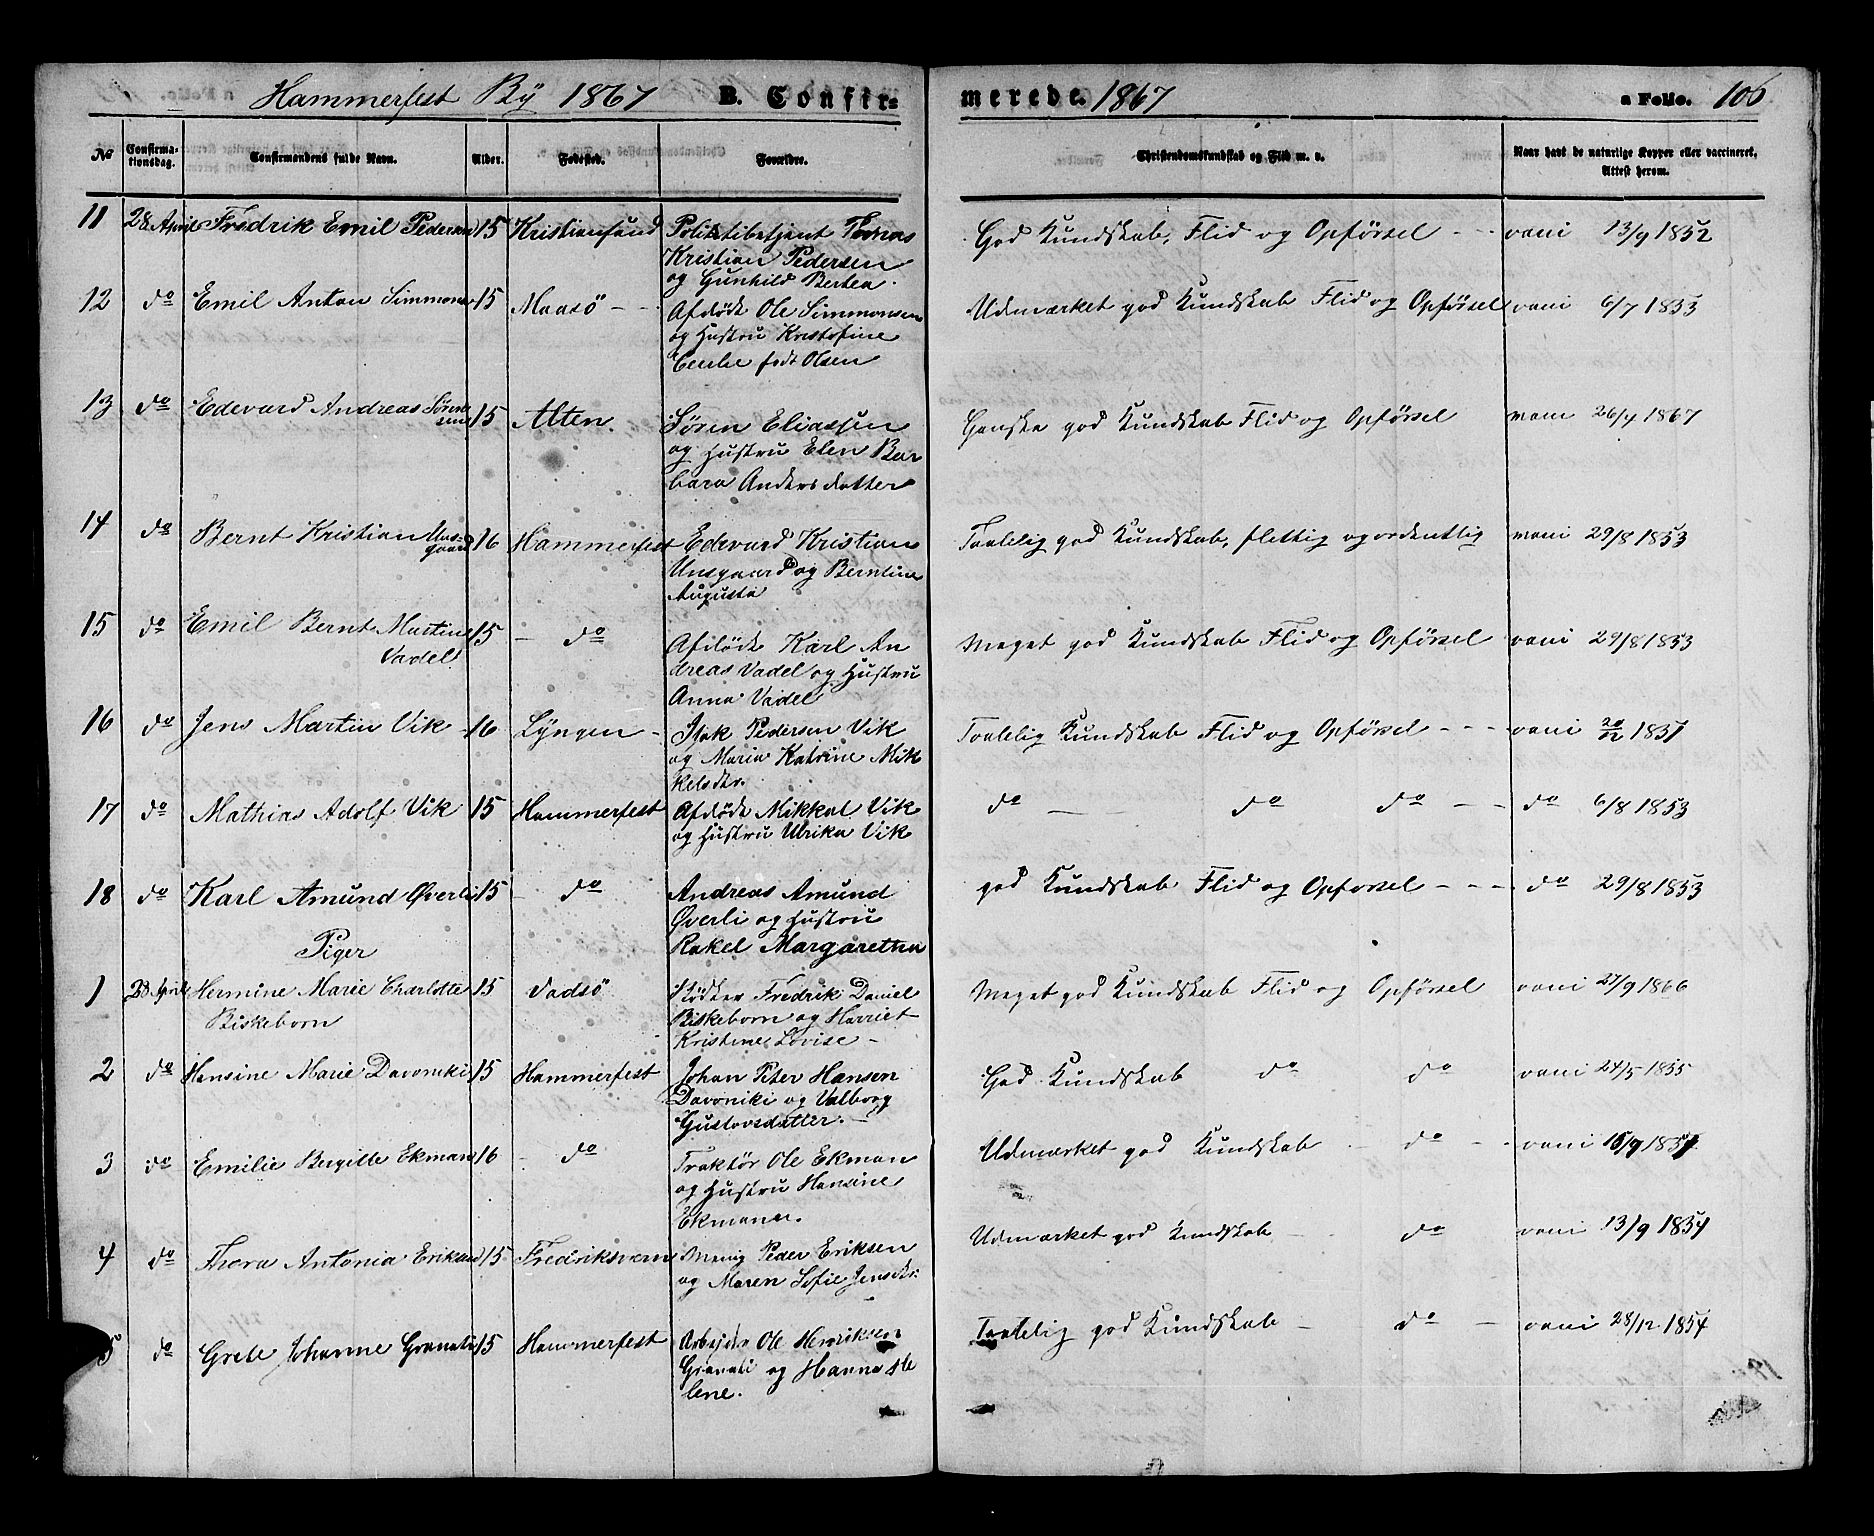 Hammerfest By 1867 B. Confir-
merede. 1867 a Folio. 106
No Confirma-tionsdag. Confirmandens fulde Navn. Alder. Fødested. Forældre. Christendomskundskab og Flid m. v. Naar havt de naturlige Kopper eller vaccineret, Attest herom.
11 28 April Fredrik Emil Pedersen 15 Kristiansund Politibetjent Tomas God Kundskab, Flid og Opførsel - - - vacc 13/9 1852
Kristian Pedersen
og Gunhild Bertea.
12 do Emil Anton Simmonsen 15 Maasö - - Afdöde Ole Simmonsen Udmærket god Kundskab Flid og Opførsel vacc 6/7 1853
og Hustru Kristofine
Cecilie født Olsen
13 do Edevard Andreas Sørensen 15 Alten. Søren Eliassen Ganske god Kundskab Flid og Opførsel vacc 26/4 1867
og Hustru Elen Bar
bara Andersdatter
14 do Bernt Kristian Unsgaard 16 Hammerfest Edevard Kristian Taalelig god Kundskab, flittig og ordentlig vacc 29/8 1853
Unsgaard og Berntine
Augusta
15 do Emil Bernt Martin 15 - do Afdöde Karl An Meget god Kundskab Flid og Opførsel vacc 29/8 1853
Vadel dreas Vadel og Hustru
Anna Vadel
16 do Jens Martin Vik - 16 - Lyngen - Isak Pedersen Vik Taalelig Kundskab Flid og Opførsel - - - vacc 20/12 1851
og Maria Katrine Mik
kelsdtr.
17 do Mathias Adolf Vik 15 Hammerfest Afdöde Mikkal Vik do - do do - - do 6/8 1853
og Hustru Ulrika Vik
18 do Karl Amund Øverli 15 - do Andreas Amund god Kundskab Flid og Opforsel - - - do 29/8 1853
Øverli og Hustru
Piger Rakel Margaretha
1 28 April Hermine Marie Charlotte 15 Vadsö Fredrik Daniel Meget god Kundskab Flid og Opførsel vacc 27/9 1866
Biskeborn Biskeborn og Harriet
Kristine Lovise -
2 do Hansine Marie Davoniki 15 Hammerfest Johan Peter Hansen God Kundskab do do vacc 24/5 1855
Davoniki og Valborg
Gustavsdatter. -
3 do Emilie Bergitte Ekmann 16 - do Traktör Ole Ekman Udmærket god Kundskab - do - vacc 15/9 1851
og Hustru Hansine
Ekmann.
4 do Thora Antonia Eriksen 15 Fredriksværn Menig Peder Eriksen Udmærket god Kundskab - do vacc 13/9 1854
og Maren Sofie Jensdtr:
5 do Grete Johanne Granati 15 Hammerfest Arbejder Ole Henriksen Taalelig god Kundskab - do - vacc 28/12 1854
Granati og Hanna He
lene.